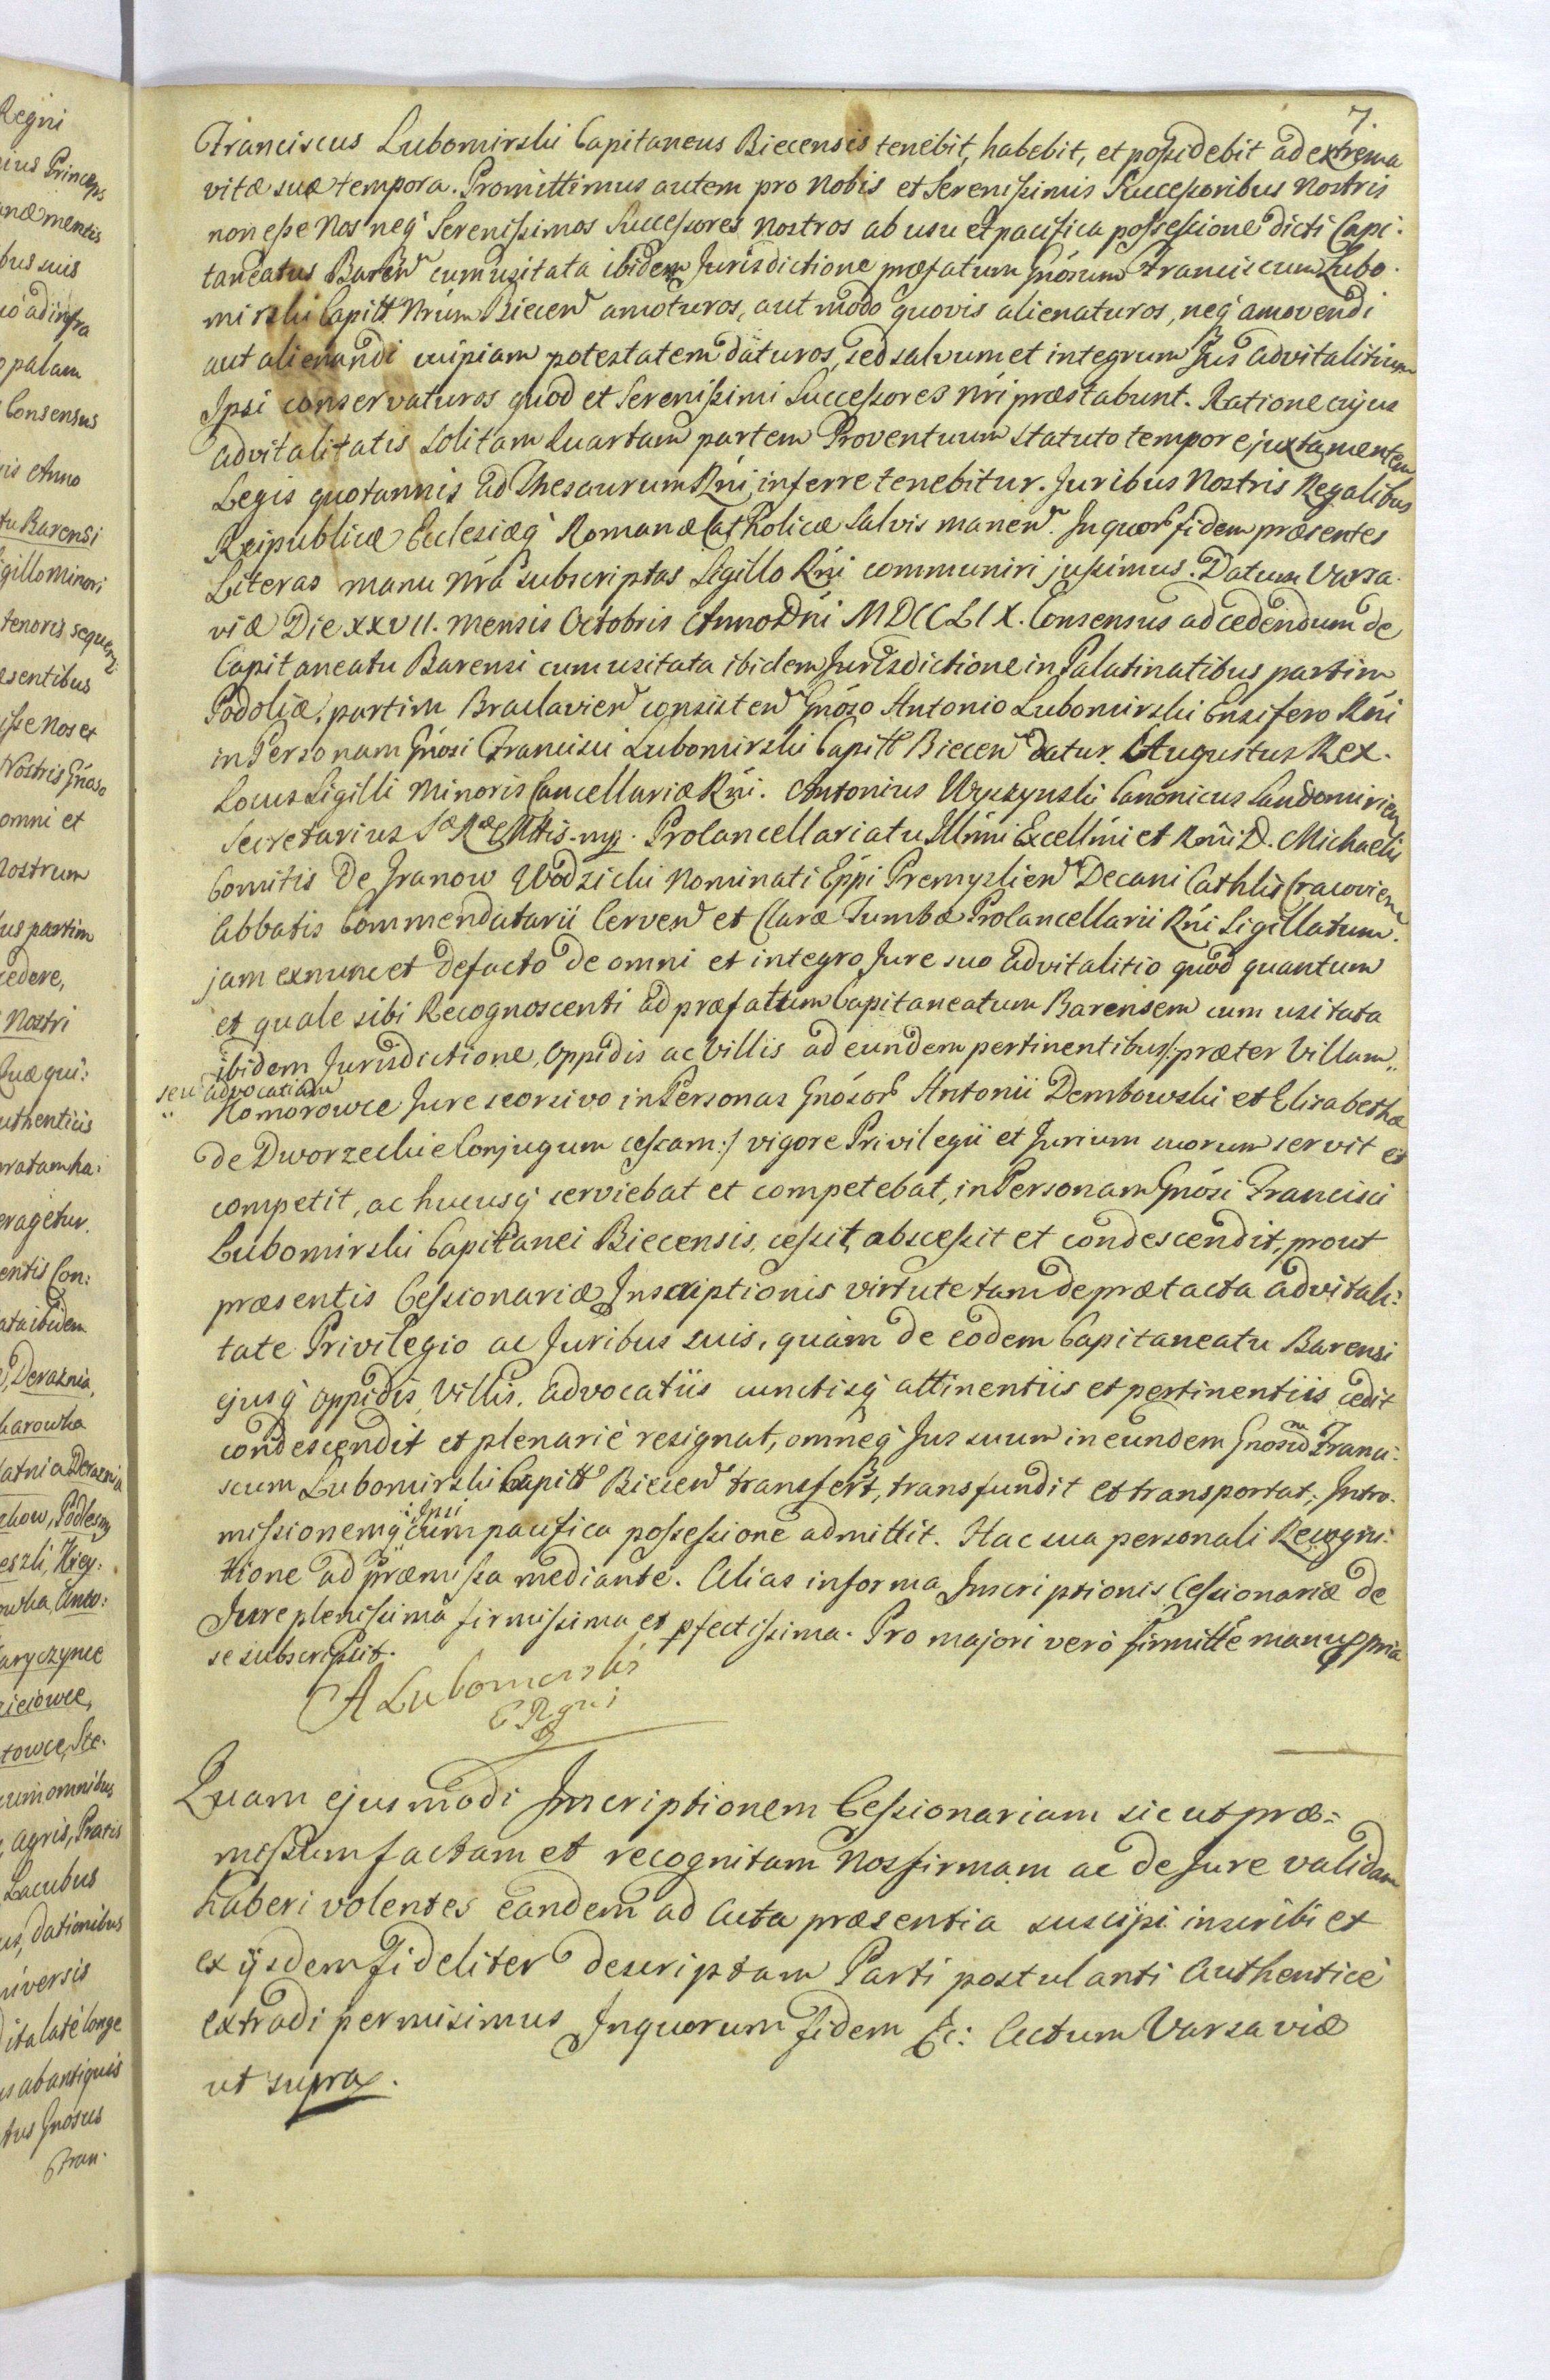 7.
Franciscus Lubomirski Capitaneus Biecensis tenebit, habebit, et possidebit ad extrema
vitæ suæ tempora. Promittimus autem pro Nobis et Serenissimis Successoribus Nostris
non esse Nos neq₃ Serenissimos Successores Nostros ab usu et pacifica possessione dicti Capi:
taneatus Baren cum usitata ibidem Jurisdictione præfatum Gnosum Franciscum Lubo:
mirski Capitt Nrum Biecen amoturos, aut modo quovis alienaturos, neq₃ amovendi
aut alienandi cuipiam potestatem daturos, sed salvum et integrum Jus advitalitium
Ipsi conservaturos quod et Serenissimi Successores Nri præstabunt. Ratione cujus
advitalitatis solitam Quartam partem Proventuum statuto tempore juxta mentem
Legis quotannis ad Thesaurum Rni inferre tenebitur. Juribus Nostris Regalibus
Reipublicæ Ecclesiæq₃ Romanæ Catholicæ salvis manen. In quor fidem præsentes
Literas manu Nra subscriptas Sigillo Rni communiri jussimus. Datum Varsa:
viæ Die XXVII. mensis Octobris Anno Dni MDCCLIX. Consensus ad cedendum de
Capitaneatu Barensi cum usitata ibidem Jurisdictione in Palatinatibus partim
Podoliæ, partim Braclavien consisten Gnoso Antonio Lubomirski Ensifero Rni
in Personam Gnosi Francisci Lubomirski Capitt Biecen datur. Augustus Rex.
Locus Sigilli Minoris Cancellariæ Rni. Antonius Wyszynski Canonicus Sandomirien
Secretarius Sæ Ræ Mttis. mp. Procancellariatu Illmi Excellmi et Rmi D. Michaelis
Comitis De Granow Wodzicki Nominati Eppi Premyslien Decani Cathlis Cracovien
Abbatis Commendatarii Cerven et Claræ Tumbæ Procancellarii Rni Sigillatum.
jam ex nunc et de facto de omni et integro Jure suo advitalitio quod quantum
et quale sibi Recognoscenti ad præfatum Capitaneatum Barensem cum usitata
ibidem Jurisdictione, Oppidis ac Villis ad eundem pertinentibus /: præter Villam
seu advocatiam
Komorowce Jure seorsivo in Personas Gnosor Antonii Dembowski et Elisabethæ
de Dworzeckie Conjugum cessam :/ vigore Privilegii et Jurium suorum servit et
competit, ac hucusq₃ serviebat et competebat, in Personam Gnosi Francisci
Lubomirski Capitanei Biecensis, cessit, abscessit et condescendit, prout
præsentis Cessionariæ Inscriptionis virtute tam de prætacta advitali:
tate Privilegio ac Juribus suis, quàm de eodem Capitaneatu Barensi
ejusq₃ oppidis, Villis, advocatiis cunctisq₃ attinentiis et pertinentiis cedit
condescendit et plenariè resignat, omneq₃ Jus suum in eundem Gnosum Franci:
scum Lubomirski Capitt Biecen transfert, transfundit et transportat; Intro:
missionemq₃ Ipsi cum pacifica possessione admittit. Hac sua personali Recogni:
tione ad præmissa mediante. Alias in forma Inscriptionis Cessionariæ de
Jure plenissima firmissima et pfectissima. Pro majori verò firmitte manu ppria
se subscripsit.
A Lubomirski
E Rgni
Quam ejusmodi Inscriptionem Cessionariam sic ut præ:
missum factam et recognitam Nos firmam ac de Jure validam
haberi volentes eandem ad Acta præsentia suscipi inscribi et
ex ijsdem fideliter descriptam Parti postulanti Authenticè
extradi permisimus In quorum fidem &c: Actum Varsaviæ
ut supra.